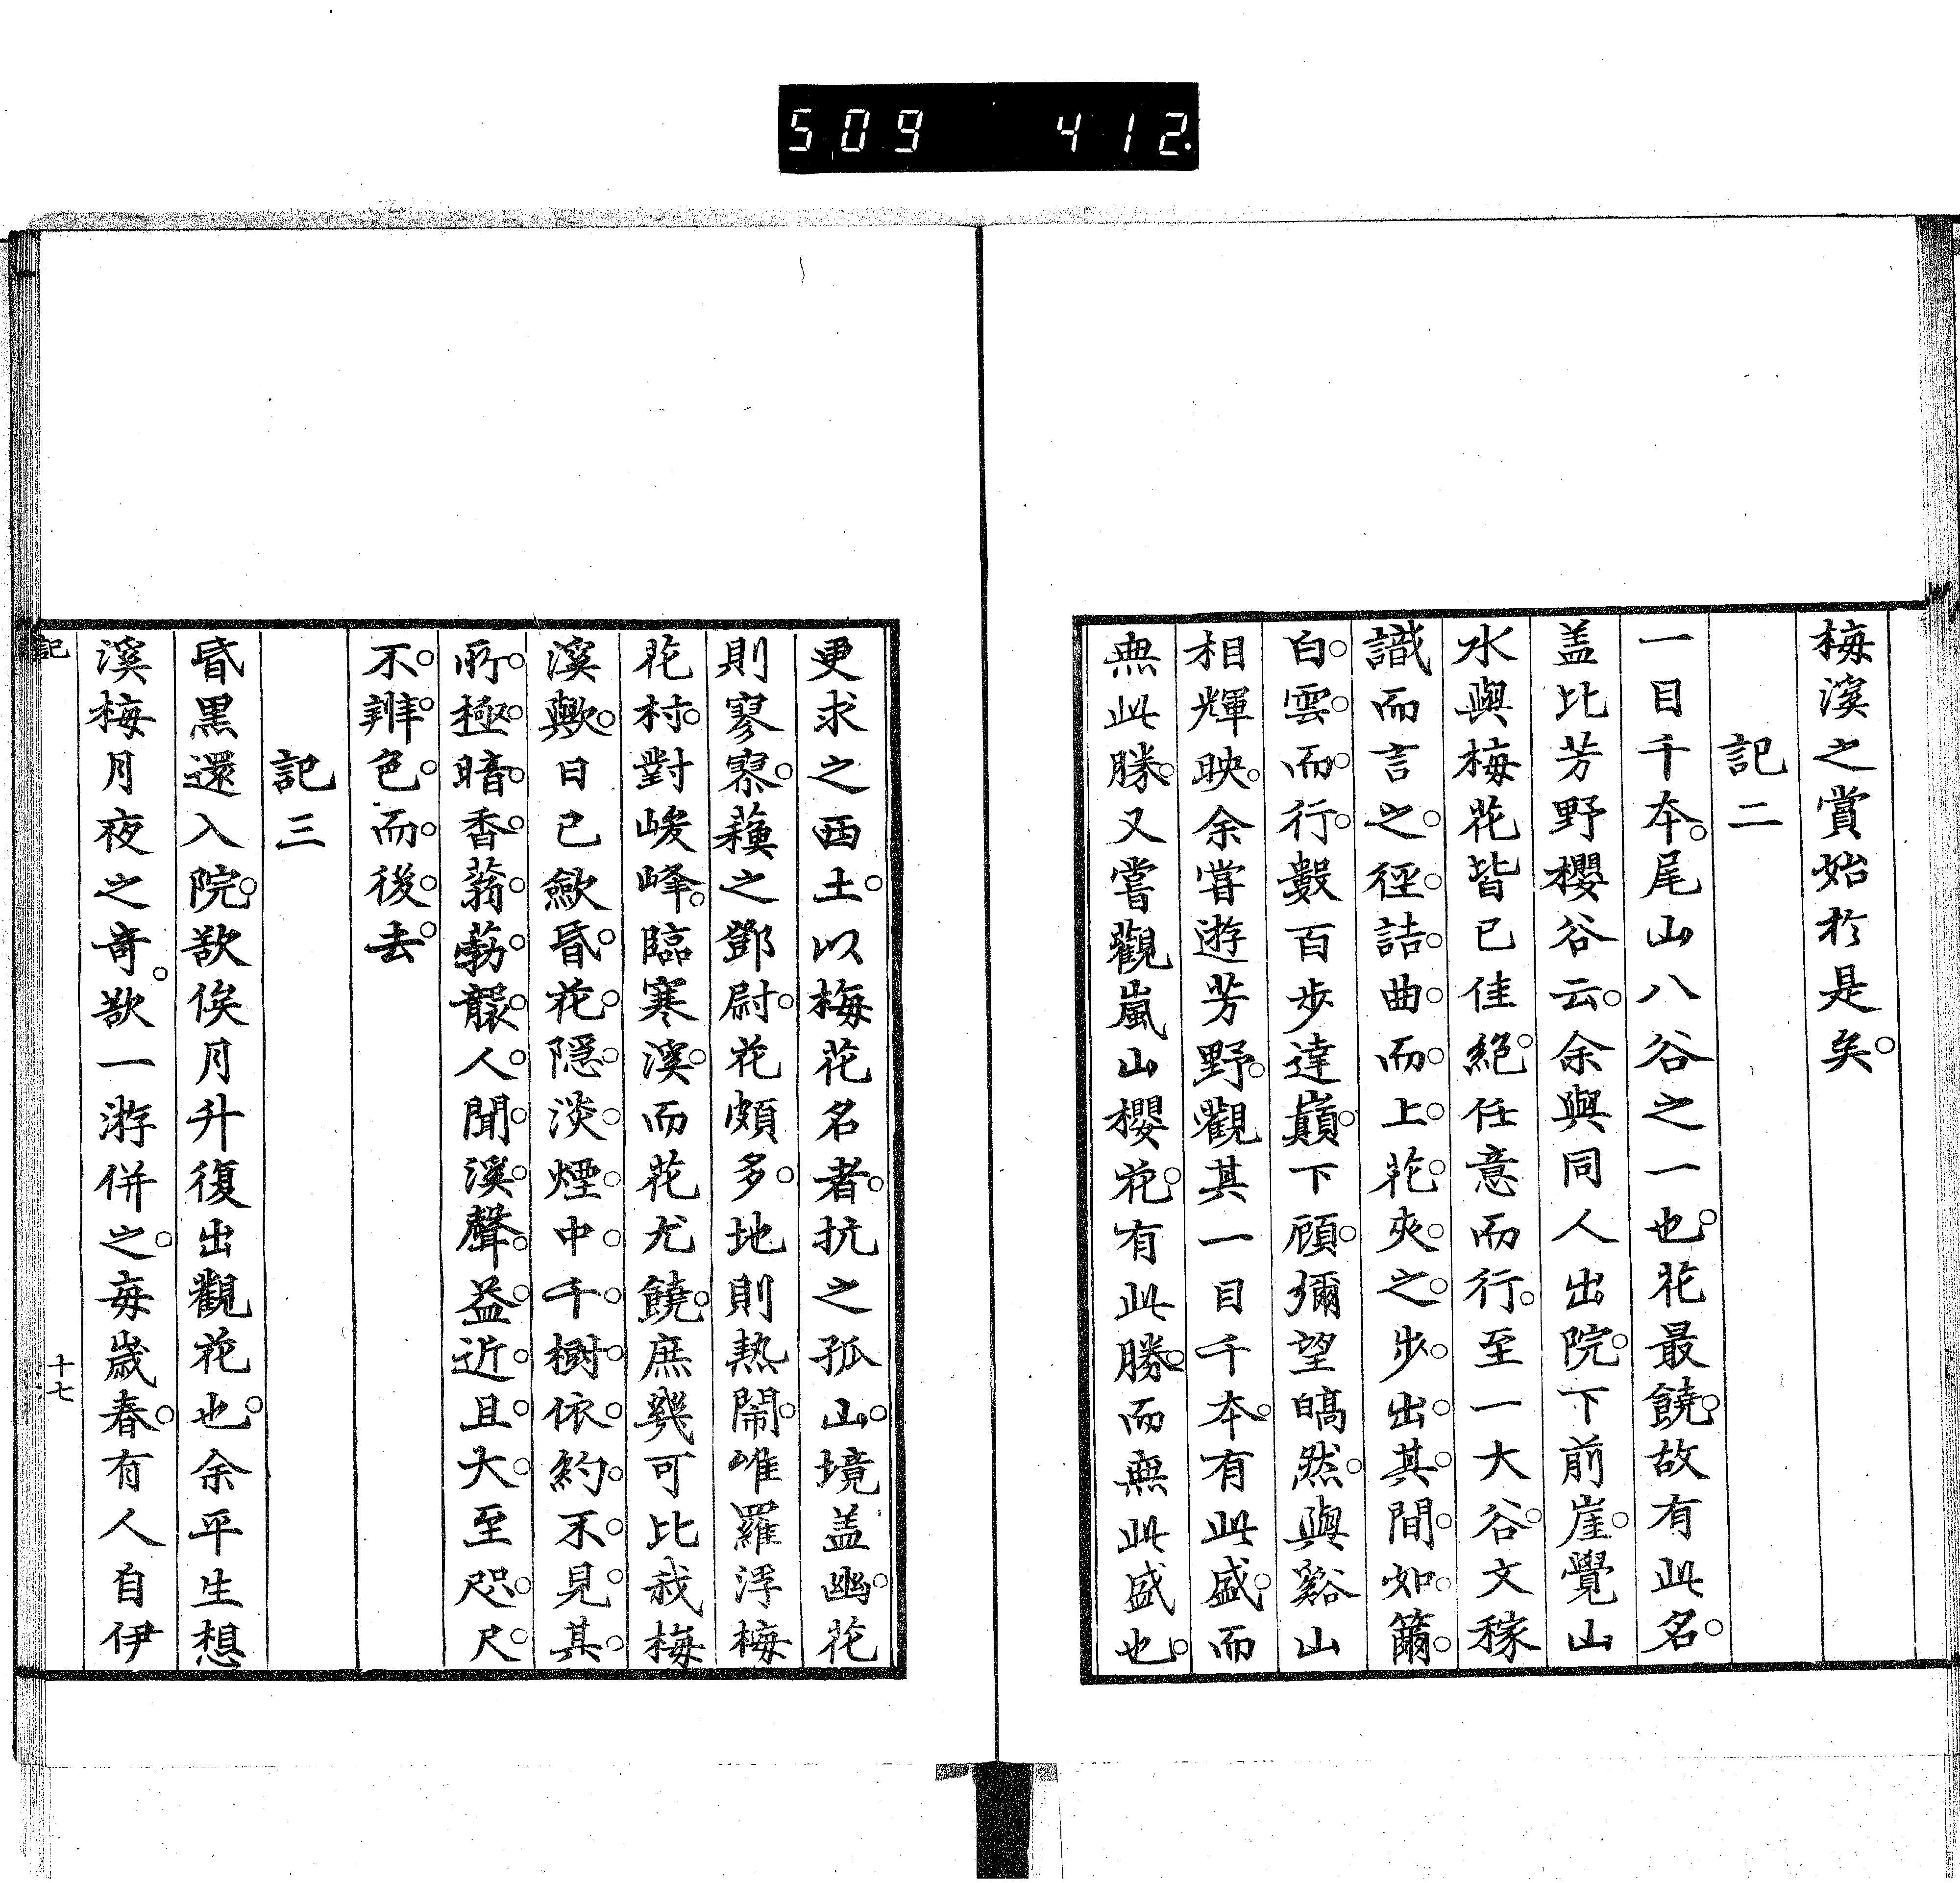 509 412
梅溪之賞始於是矣。
記二
一目千本。尾山八谷之一也。花最饒。故有此名。
盖比芳野櫻谷云。余與同人出院。下前崖。覺山
水與梅花皆已佳絕。任意而行。至一大谷。文稼
識而言之。徑詰曲而上。花夾之。步出其間。如籋
白雲而行。數百步達巔。下顧彌望皜然。與谿山
相輝映。余嘗遊芳野。觀其一目千本。有此盛。而
無此勝。又嘗觀嵐山櫻花。有此勝。而無此盛也。
更求之西土。以梅花名者。杭之孤山。境盖幽。花
則寥寥。蘓之鄧尉。花頗多。地則熱鬧。唯羅浮梅
花村。對峻峰。臨寒溪。而花尤饒。庶幾可比我梅
溪歟。日已歛昏。花隱淡煙中。千樹依約。不見其
所極。暗香蓊葧襲人。聞溪聲益近且大。至咫尺
不辨色而後去。
記三
昏黑還入院。欲俟月升復出觀花也。余平生想
溪梅月夜之奇。欲一游併之。每歲春。有人自伊
記
十七